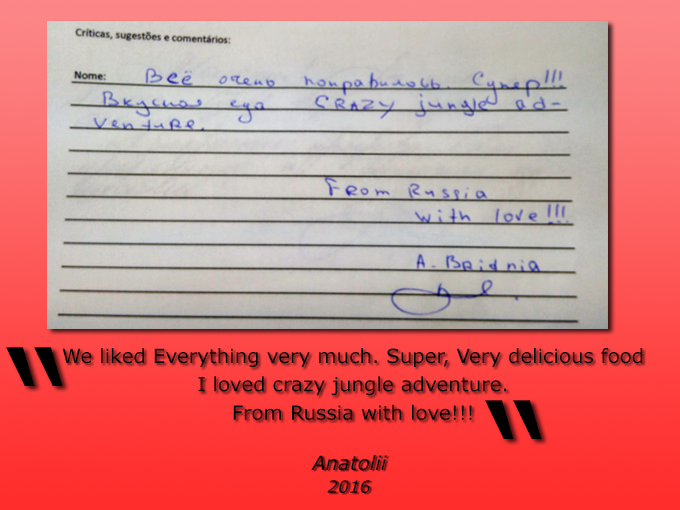 Críticas, sugestões e comentários:
Nome: Всё очень понравилось. Супер!!!
Вкусная еда CRAZY jungle ad-
venture.
From Russia
with love!!!
A. Bridnia
We liked Everything very much. Super, Very delicious food
I loved crazy jungle adventure.
From Russia with love!!!
Anatolii
2016